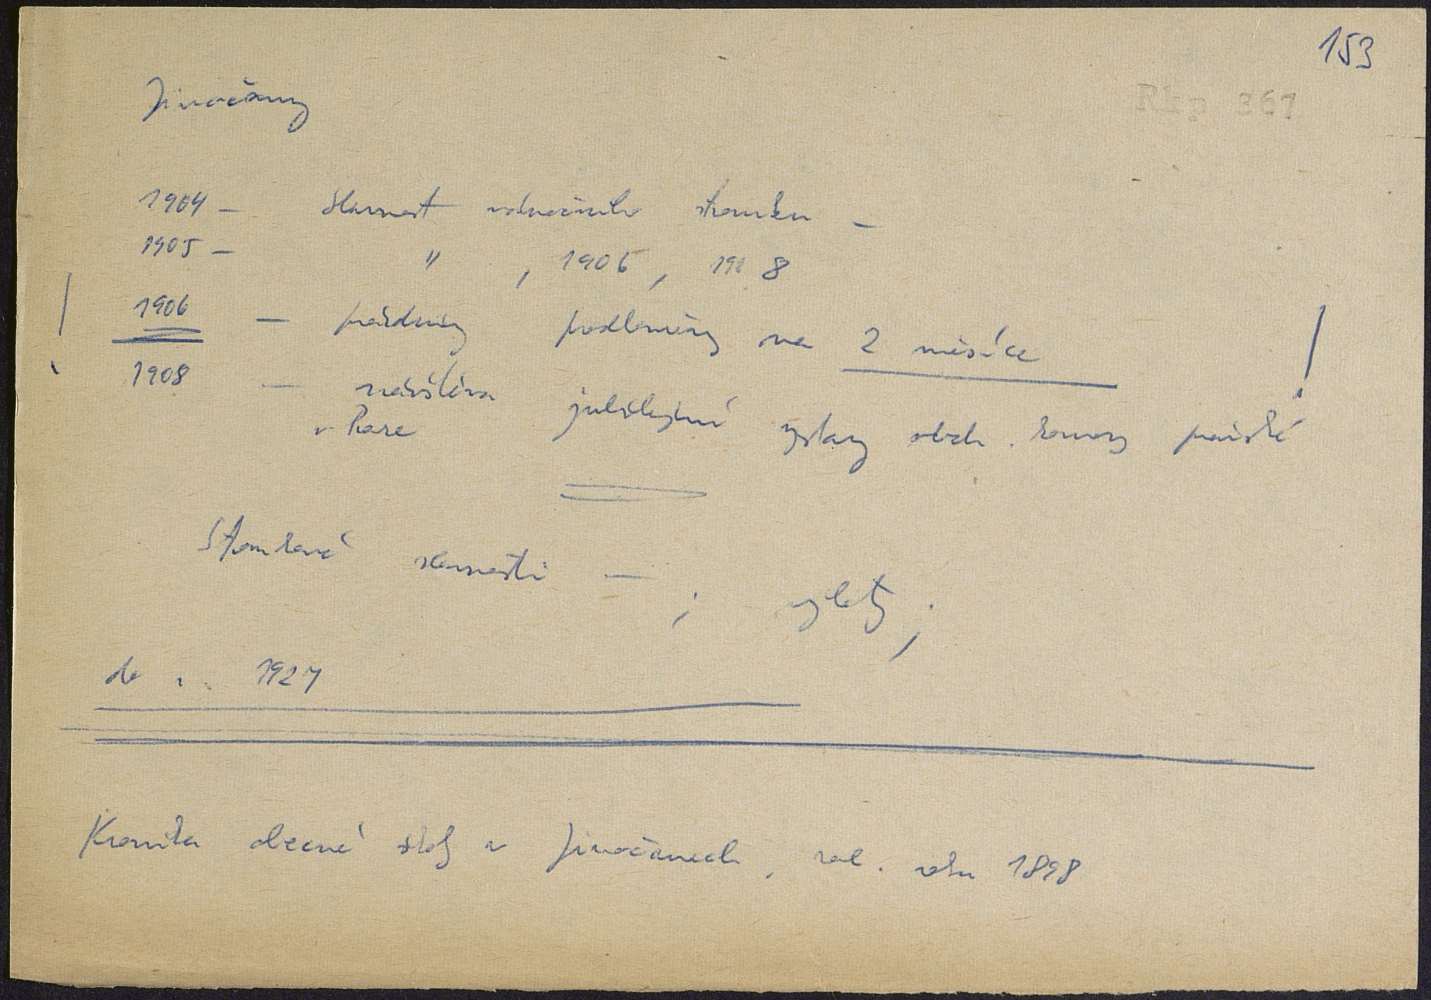 153
Rkp 367
Jinočany
1904 – slavnost vánočního stromku –
1905 – " , 1906 , 1908
! 1906 – prázdniny prodlouženy na 2 měsíce !
1908 – návštěva jubilejní výstavy obch. komory pražské
v Praze
Stromkové slavnosti – ; výlety ;
do r. 1927
Kronika obecné školy v Jinočanech, zal. roku 1898